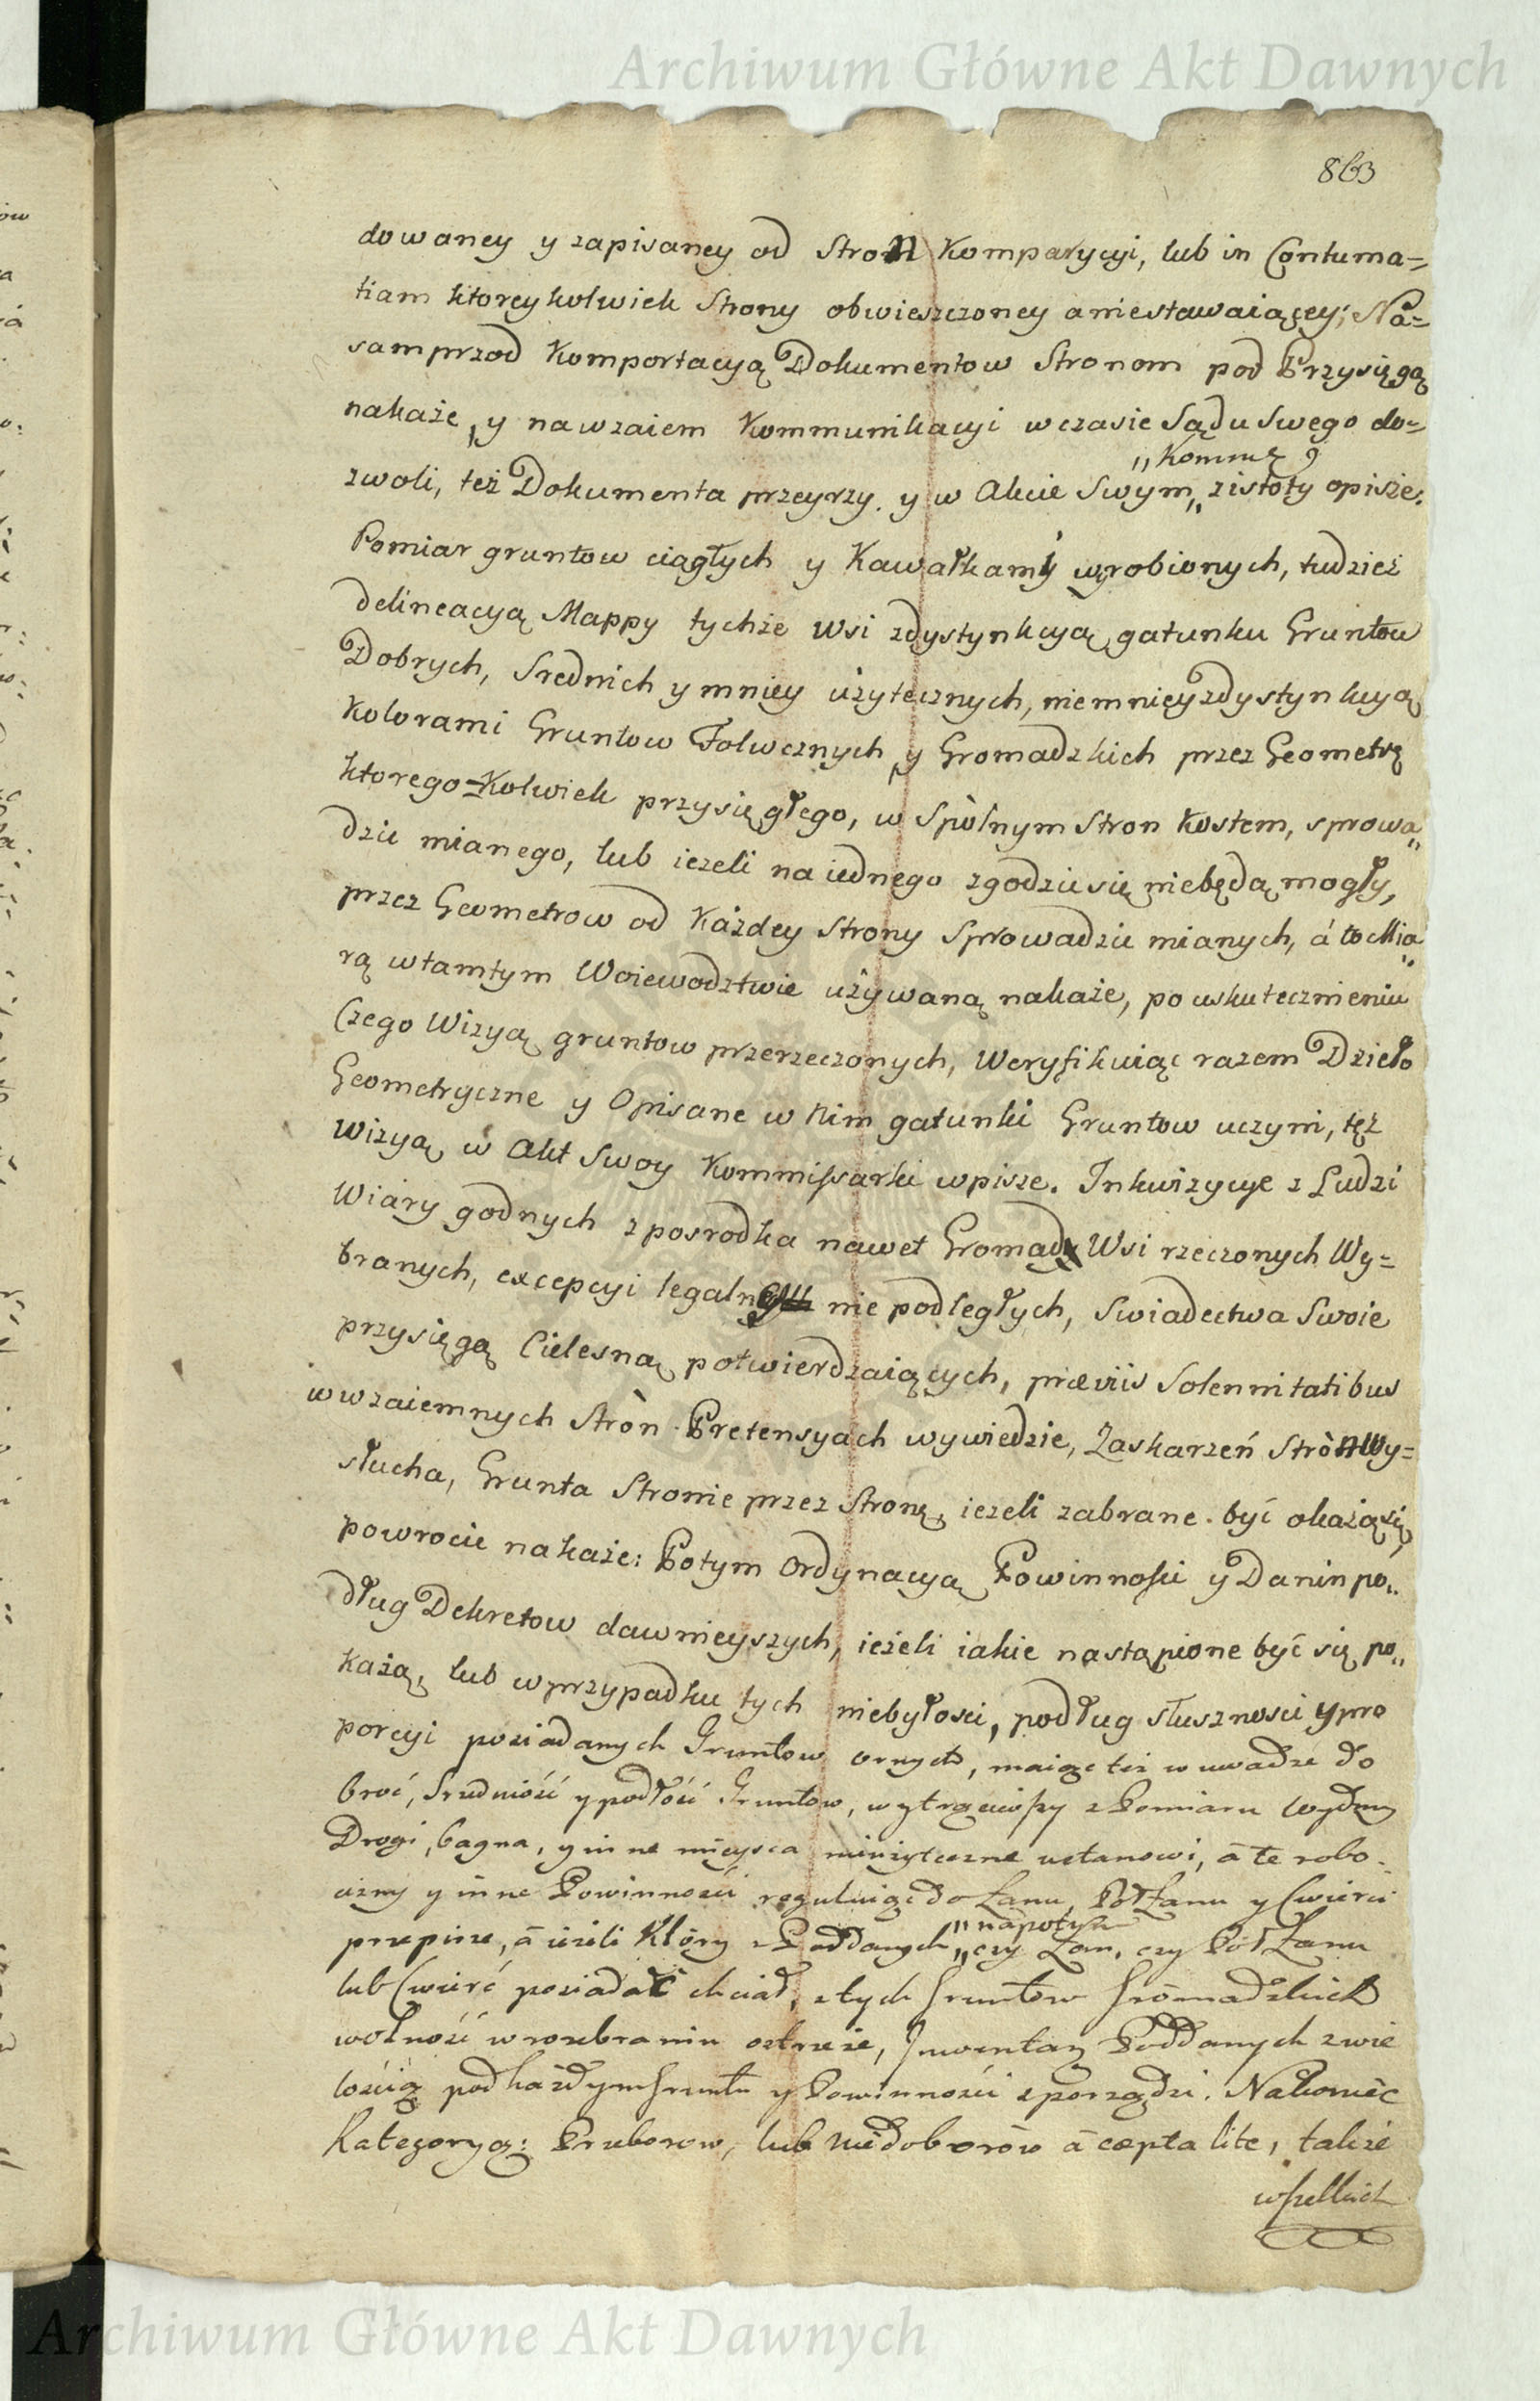 Archiwum Główne Akt Dawnych
863
dowaney y zapisaney od Stron Komparycyi, lub in Contuma=
tiam ktoreykolwiek Strony obwieszczoney a niestawaiącey; Na=
samprzod Komportacyą Dokumentow Stronom pod Przysięgą
nakaże, y nawzaiem Kommunikacyi w czasie Sądu Swego do=
„Kommę
zwoli, też Dokumenta przeyrzy. y w Akcie Swym „ zistoty opisze.
Pomiar gruntow ciągłych y Kawałkamy wyrobionych, tudzież
delineacyą Mappy tychże Wsi zdystynkcyą gatunku Gruntow
Dobrych, Srednich y mniey użytecznych, niemniey zdystynkcyą
Kolorami Gruntow Folwcznych y Gromadzkich przez Geometrę
ktorego=Kolwiek przysięgłego, w Spòlnym Stron Kosztem, sprowa„
dzić mianego, lub ieżeli na iednego zgodzić się niebędą mogły,
przez Geometrow od Każdey Strony Sprowadzić mianych, á to Mia„
rą w tamtym Woiewodztwie używaną nakaże, po uskutecznieniu
Czego Wizyą gruntow przerzeczonych, Weryfikuiąc razem Dzieło
Geometryczne y Opisane w Nim gatunki Gruntow uczyni, tęż
Wizyą w Akt Swoy Kommissarski wpisze. Inkwizycye z Ludzi
Wiary godnych z posrodka nawet Gromady Wsi rzeczonych Wy=
branych, excepcyi legalney nie podległych, Swiadectwa Swoie
przysięgą Cielesną potwierdzaiących, præviis Solennitatibus
w wzaiemnych Stròn Pretensyach wywiedzie, Zaskarzeń Stròn Wy=
słucha, Grunta Stronie przez Stronę, ieżeli zabrane być okażą się,
powrocić nakaże: Potym Ordynacyą Powinności y Danin po„
dług Dekretow dawnieyszych, ieżeli iakie nastąpione być się po„
każą, lub w przypadku tych niebyłosci, podług słusznosci y pro
porcyi posiadanych Gruntow ornych, maiąc też w uwadze do
broć, Sredniość y podłość Gruntow, wytrąciwszy z Pomiaru Wydmy
Drogi, bagna, y inne mieysca nieużyteczne ustanowi, á te robo
cizny y inne Powinności reguluiąc do Łanu, Poł Łanu y Cwierci
„ napotym
przepisze, á ieżeli Który z Poddanych „ czy Łan, czy Poł Łanu
lub Cwierć posiadać chciał, z tych Gruntow Gromadzkich
wolność w rozebraniu ostrzeże, Inwentarz Poddanych z wie
lością pod każdym Gruntu y Powinności zporządzi. Nakoniec
Kategoryą: Przeborow, lub niedoborów á cæpta lite, także
wszelkich
Archiwum Główne Akt Dawnych